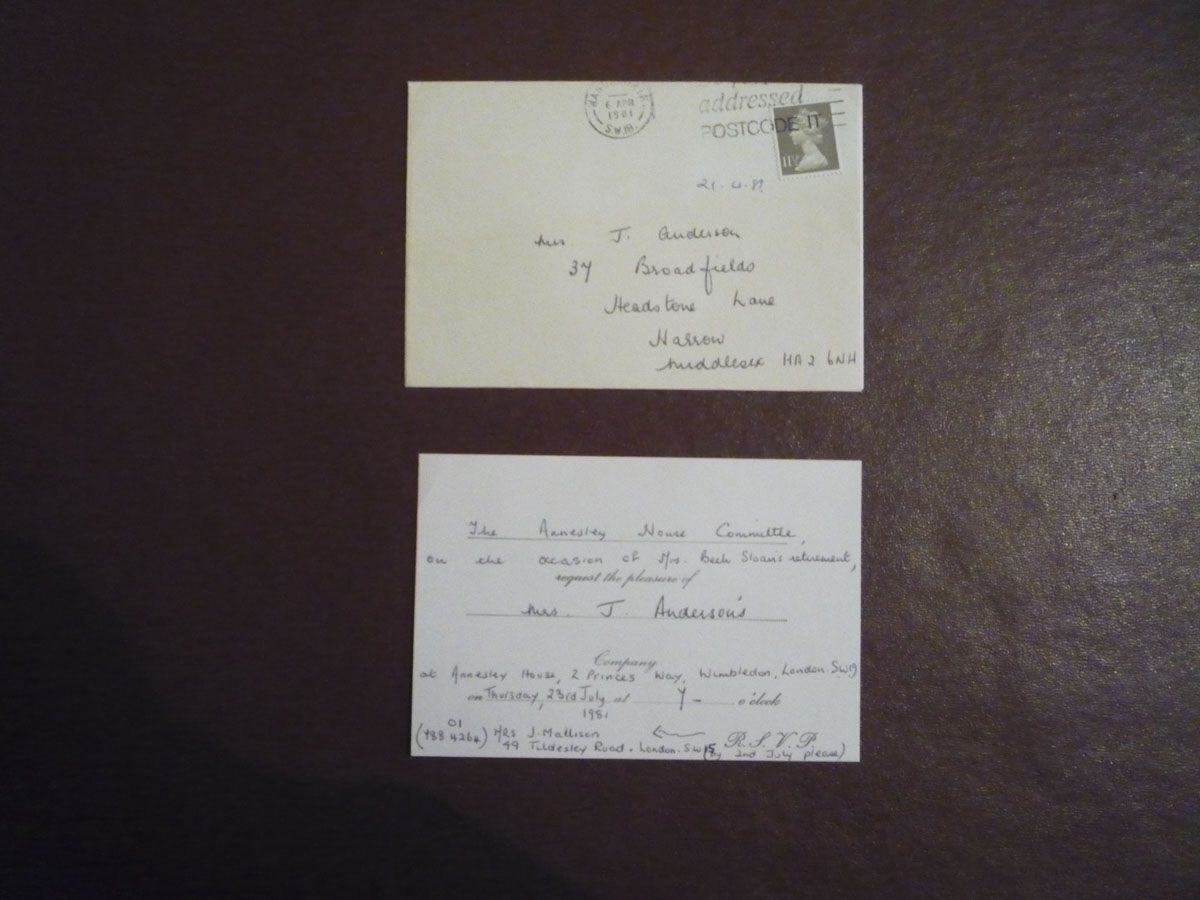 6 APR
1981
S.W.18.
addressed
POSTCODE IT
11½
Mrs. J. Anderson
37 Broadfields
Headstone Lane
Harrow
Middlesex HA2 6NH
The Annesley House Committee,
on the occasion of Mrs. Sloan's retirement,
request the pleasure of
Mrs. J. Anderson's
Company
at Annesley House, 2 Princes Way, Wimbledon, London. SW19
on Thursday, 23rd July at 7 - o'clock
1981
01
(788 4264) Mrs J. Mallison R. S. V. P.
49 Tildesley Road. London. SW15 (by 2nd July please)